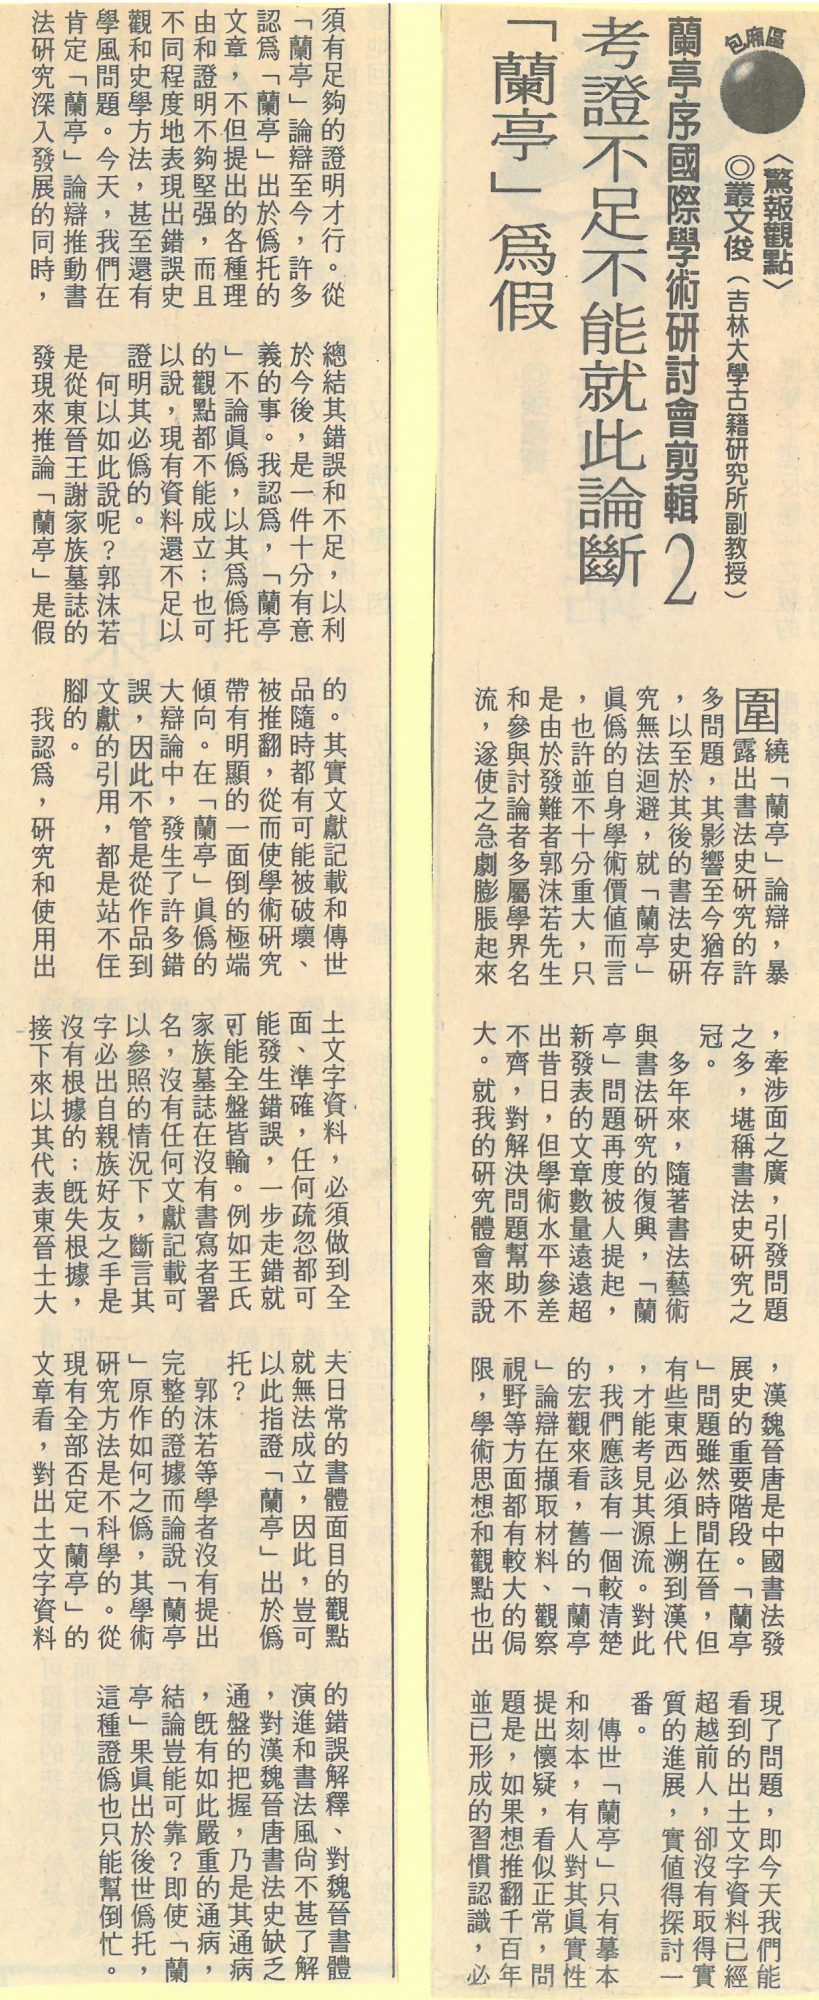 包廂區
〈驚報觀點〉
◎叢文俊（吉林大學古籍研究所副教授）
蘭亭序國際學術研討會剪輯2
考證不足不能就此論斷
「蘭亭」爲假
圍繞「蘭亭」論辯，暴
露出書法史研究的許
多問題，其影響至今猶存
，以至於其後的書法史研
究無法迴避，就「蘭亭」
眞僞的自身學術價值而言
，也許並不十分重大，只
是由於發難者郭沫若先生
和參與討論者多屬學界名
流，遂使之急劇膨脹起來
，牽涉面之廣，引發問題
之多，堪稱書法史研究之
冠。
多年來，隨著書法藝術
與書法研究的復興，「蘭
亭」問題再度被人提起，
新發表的文章數量遠遠超
出昔日，但學術水平參差
不齊，對解決問題幫助不
大。就我的研究體會來說
，漢魏晉唐是中國書法發
展史的重要階段。「蘭亭
」問題雖然時間在晉，但
有些東西必須上溯到漢代
，才能考見其源流。對此
，我們應該有一個較清楚
的宏觀來看，舊的「蘭亭
」論辯在擷取材料、觀察
視野等方面都有較大的侷
限，學術思想和觀點也出
現了問題，即今天我們能
看到的出土文字資料已經
超越前人，卻沒有取得實
質的進展，實值得探討一
番。
傳世「蘭亭」只有摹本
和刻本，有人對其眞實性
提出懷疑，看似正常，問
題是，如果想推翻千百年
並已形成的習慣認識，必
須有足夠的證明才行。從
「蘭亭」論辯至今，許多
認爲「蘭亭」出於僞托的
文章，不但提出的各種理
由和證明不夠堅强，而且
不同程度地表現出錯誤史
觀和史學方法，甚至還有
學風問題。今天，我們在
肯定「蘭亭」論辯推動書
法研究深入發展的同時，
總結其錯誤和不足，以利
於今後，是一件十分有意
義的事。我認爲，「蘭亭
」不論眞僞，以其爲僞托
的觀點都不能成立；也可
以說，現有資料還不足以
證明其必僞的。
何以如此說呢？郭沫若
是從東晉王謝家族墓誌的
發現來推論「蘭亭」是假
的。其實文獻記載和傳世
品隨時都有可能被破壞、
被推翻，從而使學術研究
帶有明顯的一面倒的極端
傾向。在「蘭亭」眞僞的
大辯論中，發生了許多錯
誤，因此不管是從作品到
文獻的引用，都是站不住
腳的。
我認爲，研究和使用出
土文字資料，必須做到全
面、準確，任何疏忽都可
能發生錯誤，一步走錯就
可能全盤皆輸。例如王氏
家族墓誌在沒有書寫者署
名，沒有任何文獻記載可
以參照的情況下，斷言其
字必出自親族好友之手是
沒有根據的；旣失根據，
接下來以其代表東晉士大
夫日常的書體面目的觀點
就無法成立，因此，豈可
以此指證「蘭亭」出於僞
托？
郭沫若等學者沒有提出
完整的證據而論說「蘭亭
」原作如何之僞，其學術
研究方法是不科學的。從
現有全部否定「蘭亭」的
文章看，對出土文字資料
的錯誤解釋、對魏晉書體
演進和書法風尚不甚了解
，對漢魏晉唐書法史缺乏
通盤的把握，乃是其通病
，旣有如此嚴重的通病，
結論豈能可靠？即使「蘭
亭」果眞出於後世僞托，
這種證僞也只能幫倒忙。